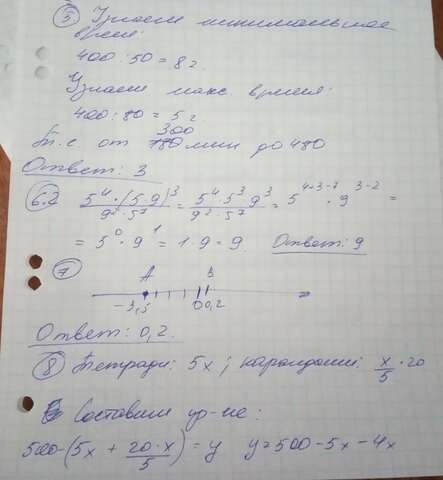 5. Узнаем минимальное
время:
400 : 50 = 8 г.
Узнаем макс. время:
400 : 80 = 5 г
300
Т.е. от 180 мин до 480
Ответ: 3
6.2 5⁴·(5·9)³/9²·5⁷ = 5⁴·5³·9³/9²·5⁷ = 5⁴⁺³⁻⁷ · 9³⁻² =
= 5⁰ · 9¹ = 1·9 = 9 Ответ: 9
7
A B
-3,5 0 0,2
Ответ: 0,2.
8 Тетради: 5x; карандаши: x/5 · 20
Составим ур-ие:
500-(5x + 20·x/5) = y y = 500 - 5x - 4x